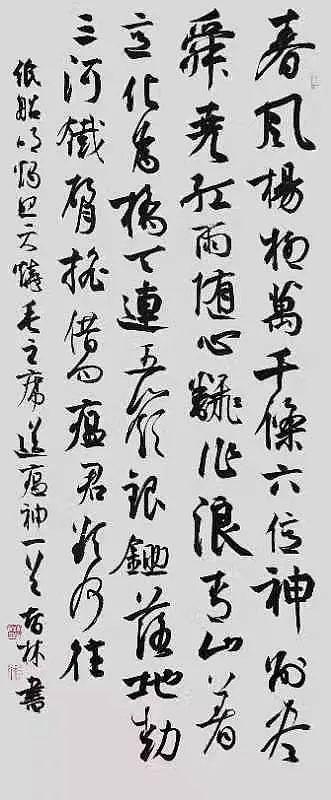 春風楊柳萬千條六億神州盡
舜堯紅雨随心翻作浪青山着
意化為橋天連五嶺銀鋤落地動
三河鐵臂搖借問瘟君欲何往
紙船明燭照天燒毛主席送瘟神一首 林書